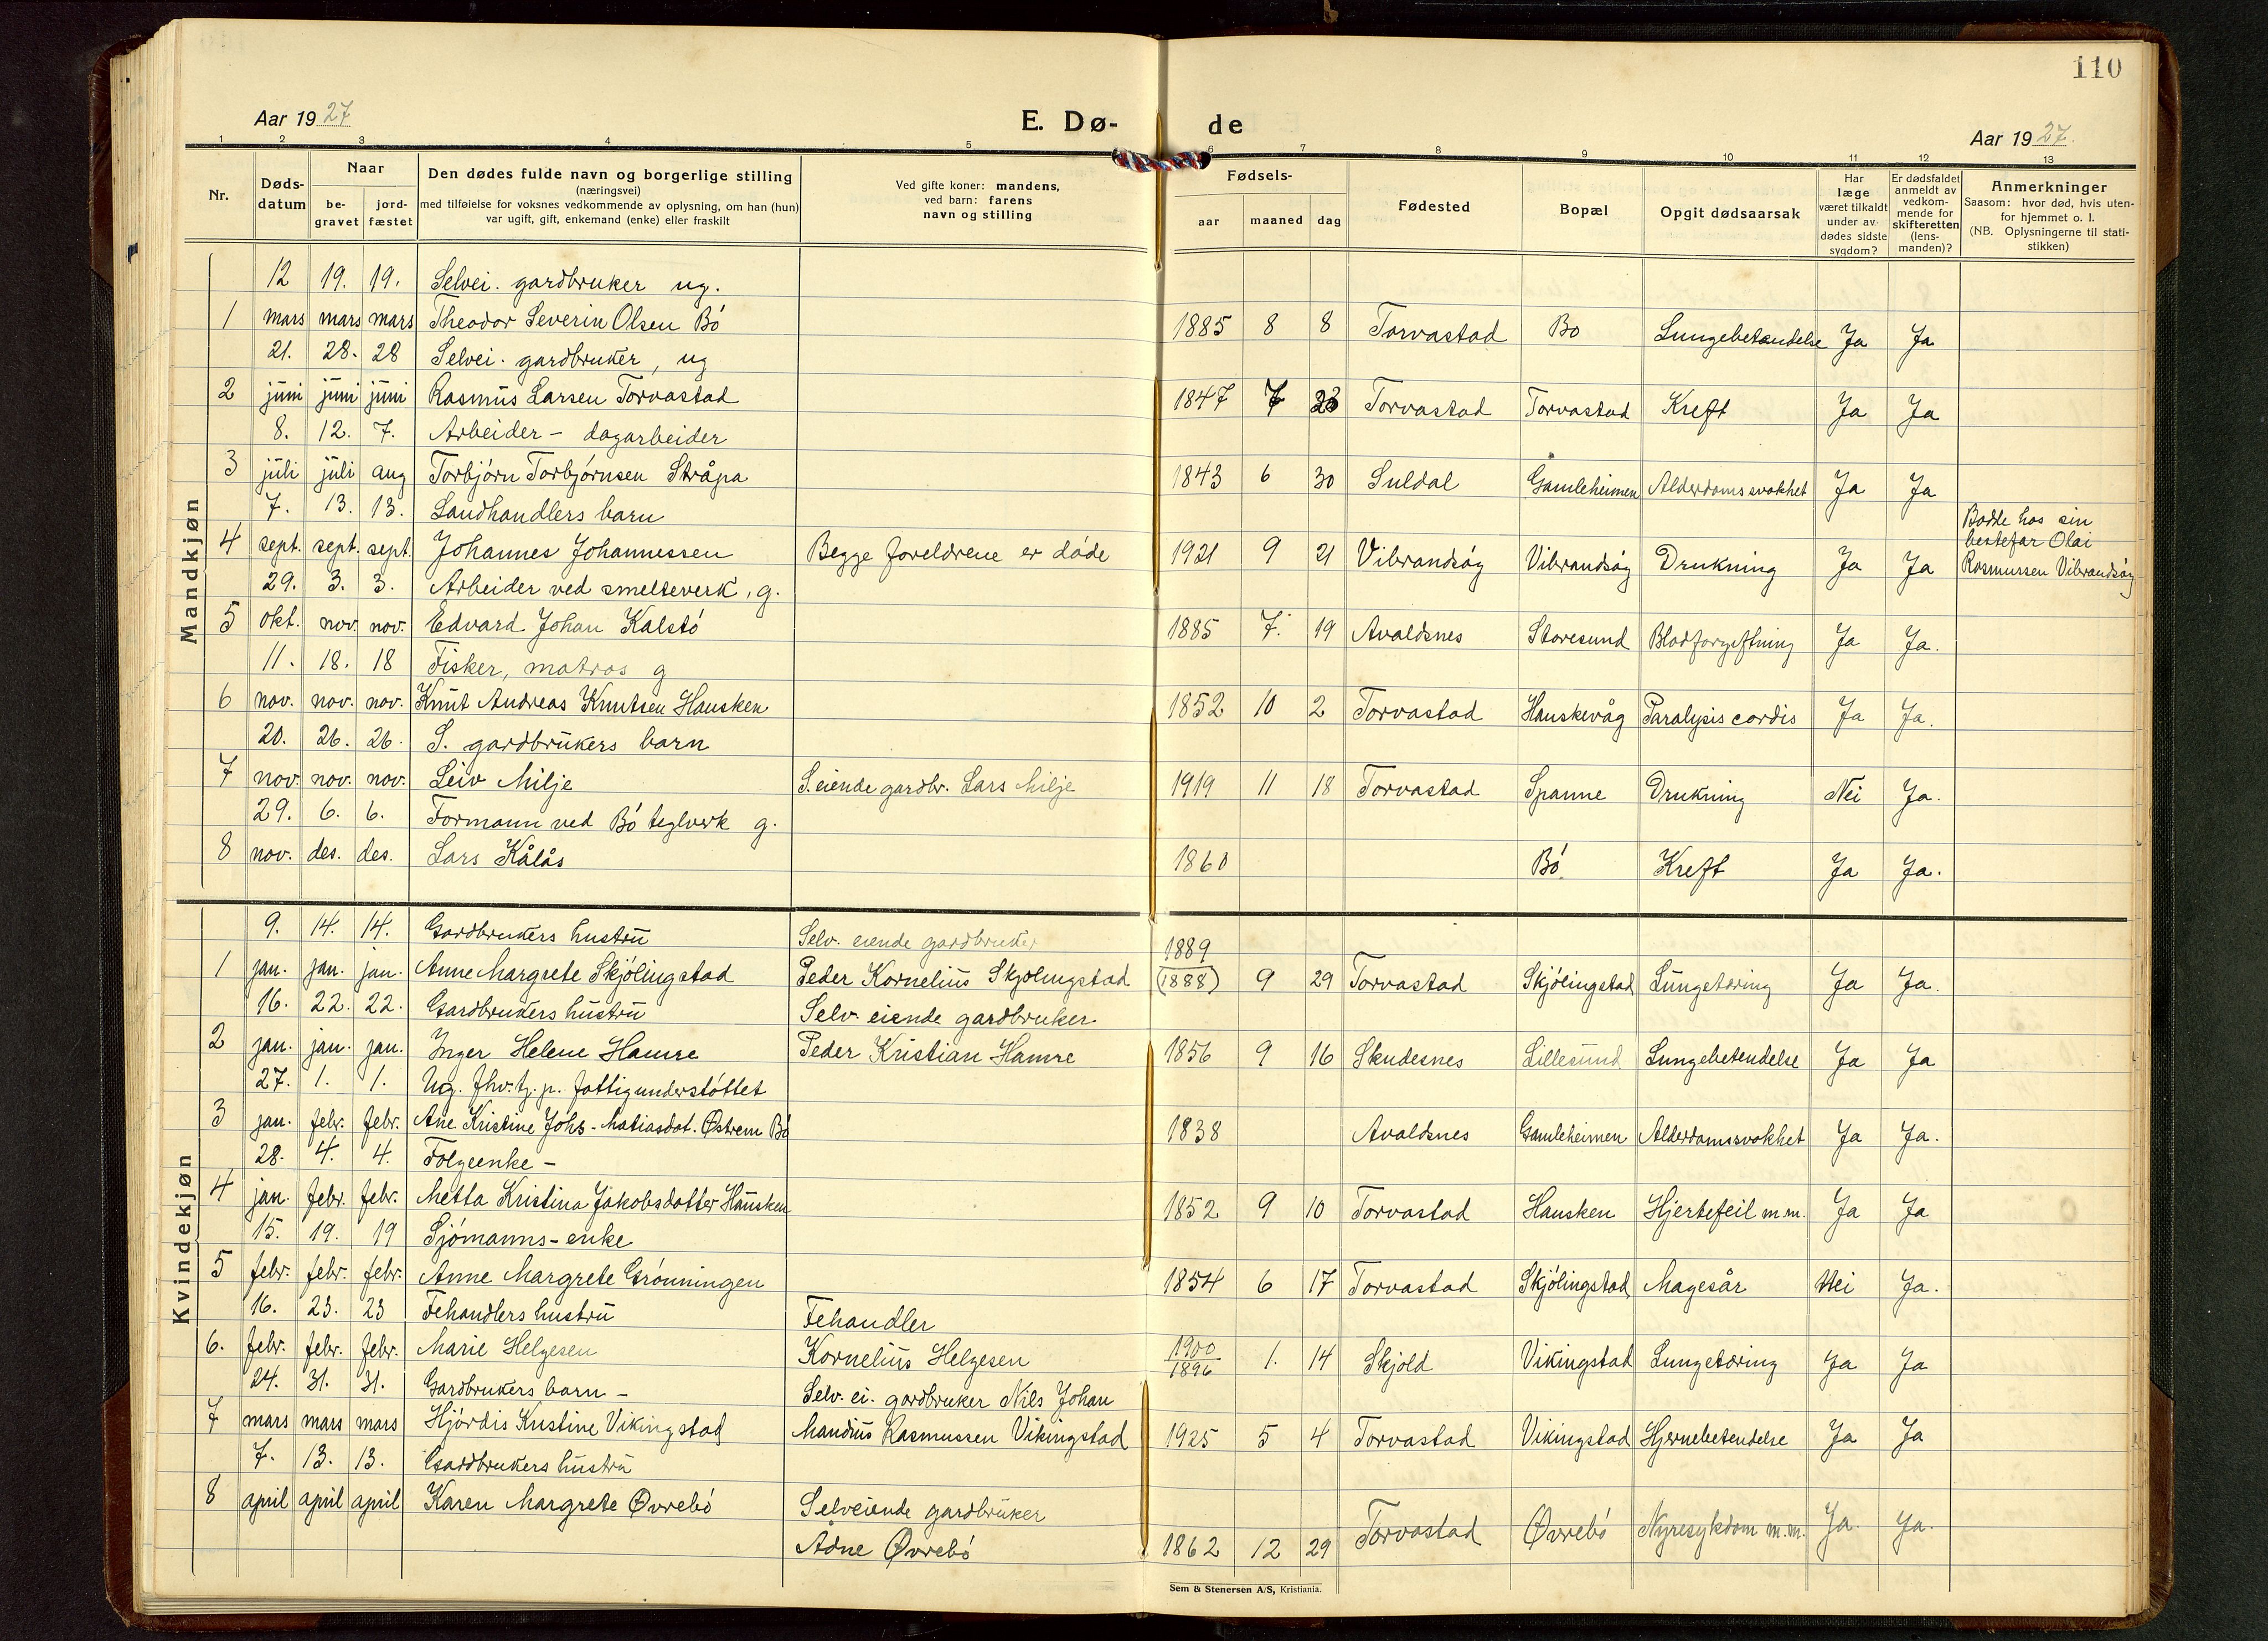 110
Aar 1927
E. Dø-
de
Aar 1927.
1 2 3 4 5 6 7 8 9 10 11 12 13
Nr.
Døds-
datum
Naar
be-
gravet
jord-
fæstet
Den dødes fulde navn og borgerlige stilling
(næringsvei)
med tilføielse for voksnes vedkommende av oplysning, om han (hun)
var ugift, gift, enkemand (enke) eller fraskilt
Ved gifte koner: mandens,
ved barn: farens
navn og stilling
Fødsels-
aar maaned dag
Fødested
Bopæl
Opgit dødsaarsak
Har
læge
været tilkaldt
under av-
dødes sidste
sygdom?
Er dødsfaldet
anmeldt av
vedkom-
mende for
skifteretten
(lens-
manden)?
Anmerkninger
Saasom: hvor død, hvis uten-
for hjemmet o. l.
(NB. Oplysningerne til stati-
stikken)
Mandkjøn
12 19. 19. Selvei. gardbruker ug.
1 mars mars mars Theodor Severin Olsen Bó 1885 8 8 Torvastad Bo Lungebetendelse Ja Ja
21. 28. 28 Selvei. gardbruker, ug
2 juni juni juni Rasmus Larsen Torvastad 1847 7 23 Torvastad Torvastad Kreft Ja Ja
8. 12. 7. Arbeider - dagarbeider
3 juli juli aug Torbjórn Torbjórnsen Stråpa 1843 6 30 Suldal Gamleheimen Alderdomssvakhet Ja Ja
7. 13. 13. Landhandlers barn
4 sept. sept. sept. Johannes Johannessen Begge foreldrene er dóde 1921 9 21 Vibrandsóy Vibrandsóy Drukning Ja Ja
Bodde hos sin
bestefar Olai
Rasmussen Vibrandsóy
29. 3. 3. Arbeider ved smelteverk, g.
5 okt. nov. nov. Edvard Johan Kalstó 1885 7. 19 Avaldsnes Storesund Blodforgiftning Ja Ja.
11. 18. 18 Fisker, matros g
6 nov. nov. nov. Knut Andreas Knutsen Hausken 1852 10 2 Torvastad Hauskevåg Paralysis cordis Ja Ja.
20. 26. 26. S. gardbrukers barn
7 nov. nov. nov. Leiv Milje S. eiende gardbr. Lars Milje 1919 11 18 Torvastad Spanne Drukning Nei Ja.
29. 6. 6. Formann ved Bó teglverk g.
8 nov. des. des. Lars Kålås 1860 Bó Kreft Ja Ja.
Kvindekjøn
9. 14. 14. Gardbrukers hustru Selv. eiende gardbruker 1889
1 jan. jan. jan. Anne Margrete Skjólingstad Peder Kornelius Skjolingstad (1888) 9 29 Torvastad Skjólingstad Lungetæring Ja Ja.
16. 22. 22. Gardbrukers hustru Selv. eiende gardbruker
2 jan. jan. jan. Inger Helene Hamre Peder Kristian Hamre 1856 9 16 Skudesnes Lillesund Lungebetendelse Ja Ja
27. 1. 1. Ug. fhv. tj. p. fattigunderstóttet
3 jan. febr. febr. Ane Kristine Johs-Matiasdat. Østrem Bó 1838 Avaldsnes Gamleheimen Alderdomssvakhet Ja Ja.
28. 4. 4. Folgeenke -
4 jan. febr. febr. Metta Kristina Jakobsdatter Hausken 1852 9 10 Torvastad Hausken Hjertefeil m.m. Ja Ja
15. 19. 19 Sjómanns-enke
5 febr. febr. febr. Anne Margrete Grónningen 1854 6 17 Torvastad Skjólingstad Magesår Nei Ja.
16. 23. 23 Fehandlers hustru Fehandler
6. febr. febr. febr. Marie Helgesen Kornelius Helgesen 1900 1896 1. 14 Skjold Vikingstad Lungetæring Ja Ja
24. 31. 31. Gardbrukers barn - Selv. ei. gardbruker Nils Johan
7 mars mars mars Hjórdis Kristine Vikingstad Mandius Rasmussen Vikingstad 1925 5 4 Torvastad Vikingstad Hjernebetendelse Ja Ja
7. 13. 13. Gardbrukers hustru
8 april april april Karen Margrete Øvrebó Selveiende gardbruker
Adne Øvrebó 1862 12 29 Torvastad Øvrebó Nyresykdom m.m. Ja Ja.
Sem & Stenersen A/S, Kristiania.